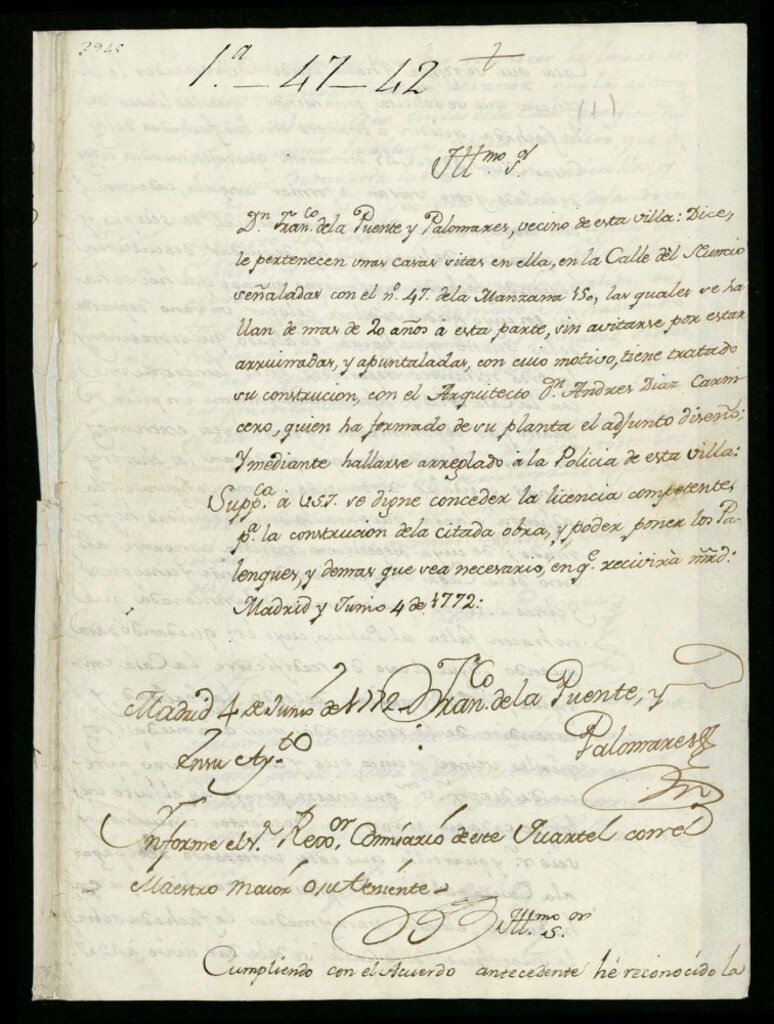 3945
1.ª - 47 - 42
(1)
Ill.mo S.r
D.n Fran.co de la Puente y Palomares, vecino de esta villa: Dice,
le pertenecen unas casas sitas en ella, en la Calle del Nuncio
señaladas con el n.º 47. de la Manzana 150, las quales se ha
llan de mas de 20 años à esta parte, sin avitarse por estar
arruinadas, y apuntaladas, con cuio motivo, tiene tratado
su construcion, con el Arquitecto D.n Andres Diaz Carni
cero, quien ha formado de su planta el adjunto diseño;
Y mediante hallarse arreglado à la Policia de esta villa:
Supp.ca à V.S.I. se digne conceder la licencia competente,
p.ª la construcion de la citada obra, y poder poner los Pa
lenques, y demas que vea necesario, en q.e recivirà mrd:
Madrid y Junio 4 de 1772:
Fran.co de la Puente, y
Palomares
Madrid 4 de Junio de 1772
En su Ay.to
Informe el S.r Rexo.or Comisario de este Quartel con el
Maestro maior ò su theniente
Ill.mo S.or
Cumpliendo con el Acuerdo antecedente hé reconocido la